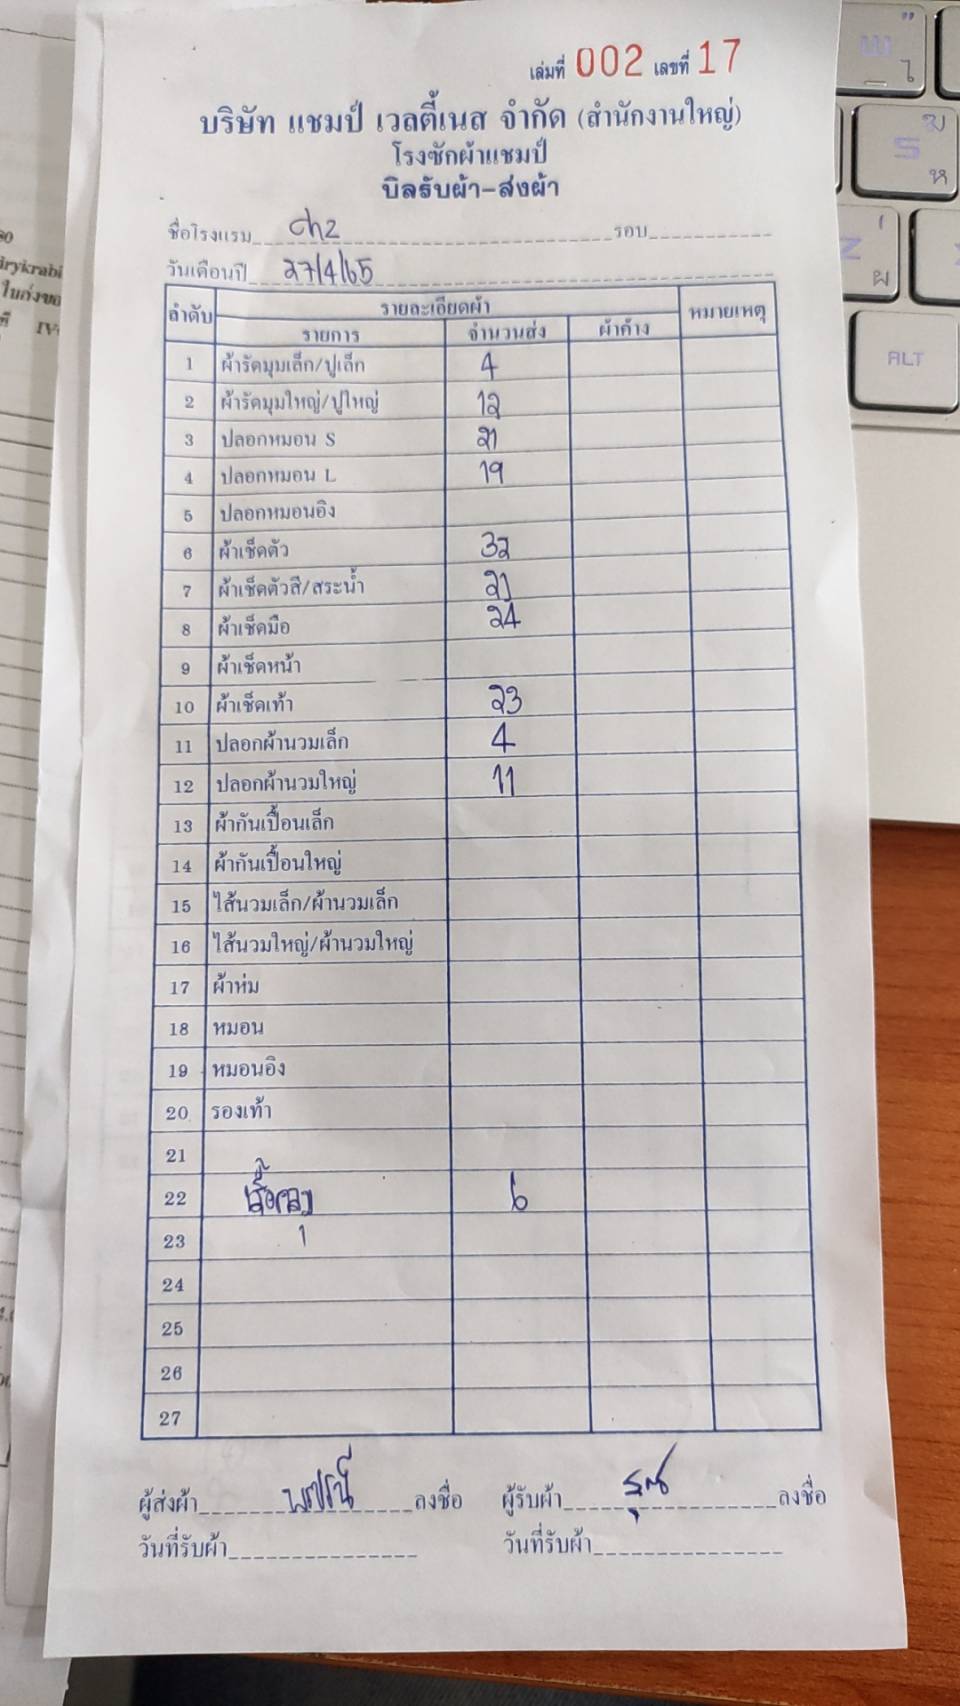 เล่มที่ 002 เลขที่ 17
บริษัท แชมป์ เวลตี้เนส จำกัด (สำนักงานใหญ่)
โรงซักผ้าแชมป์
บิลรับผ้า-ส่งผ้า
ชื่อโรงแรม ch2 รอบ
วันเดือนปี 27/4/65
ลำดับ รายละเอียดผ้า หมายเหตุ
รายการ จำนวนส่ง ผ้าค้าง
1 ผ้ารัดมุมเล็ก/ปูเล็ก 4
2 ผ้ารัดมุมใหญ่/ปูใหญ่ 12
3 ปลอกหมอน S 21
4 ปลอกหมอน L 19
5 ปลอกหมอนอิง
6 ผ้าเช็ดตัว 32
7 ผ้าเช็ดตัวสี/สระน้ำ 21
8 ผ้าเช็ดมือ 24
9 ผ้าเช็ดหน้า
10 ผ้าเช็ดเท้า 23
11 ปลอกผ้านวมเล็ก 4
12 ปลอกผ้านวมใหญ่ 11
13 ผ้ากันเปื้อนเล็ก
14 ผ้ากันเปื้อนใหญ่
15 ไส้นวมเล็ก/ผ้านวมเล็ก
16 ไส้นวมใหญ่/ผ้านวมใหญ่
17 ผ้าห่ม
18 หมอน
19 หมอนอิง
20 รองเท้า
21
22 เสื้อคลุม 6
23
24
25
26
27
ผู้ส่งผ้า ลงชื่อ ผู้รับผ้า ลงชื่อ
วันที่รับผ้า วันที่รับผ้า